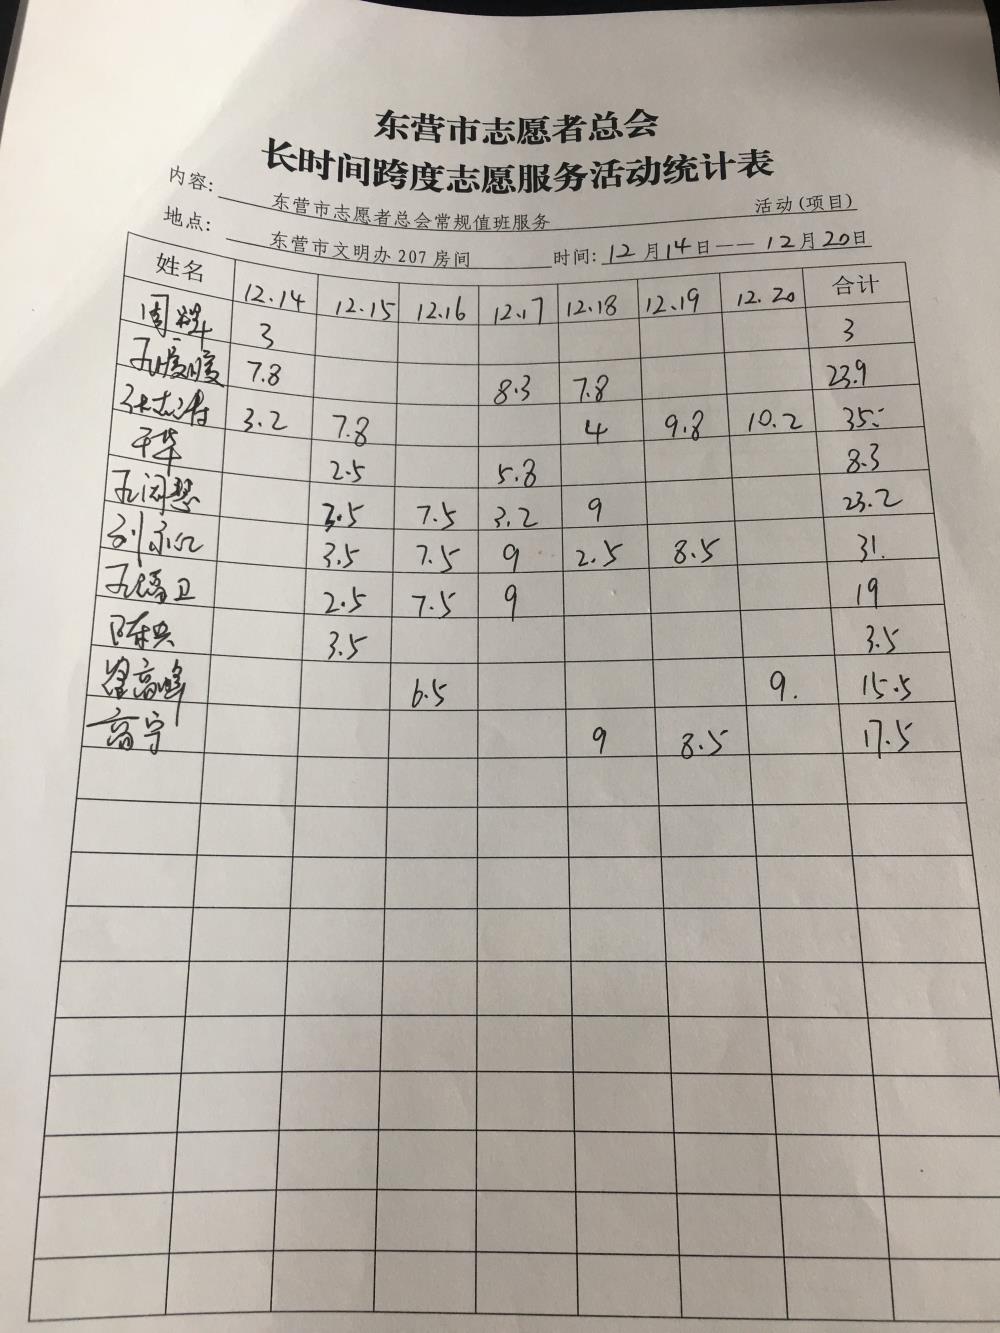 东营市志愿者总会
长时间跨度志愿服务活动统计表
内容: 东营市志愿者总会常规值班服务 活动(项目)
地点: 东营市文明办207房间 时间: 12月14日——12月20日
姓名 12.14 12.15 12.16 12.17 12.18 12.19 12.20 合计
周 3 3
孔 7.8 8.3 7.8 23.9
张志 3.2 7.8 4 9.8 10.2 35
华 2.5 5.8 8.3
孔闵慧 3.5 7.5 3.2 9 23.2
刘 3.5 7.5 9 2.5 8.5 31.
孔 卫 2.5 7.5 9 19
陈 3.5 3.5
高峰 6.5 9. 15.5
高宁 9 8.5 17.5